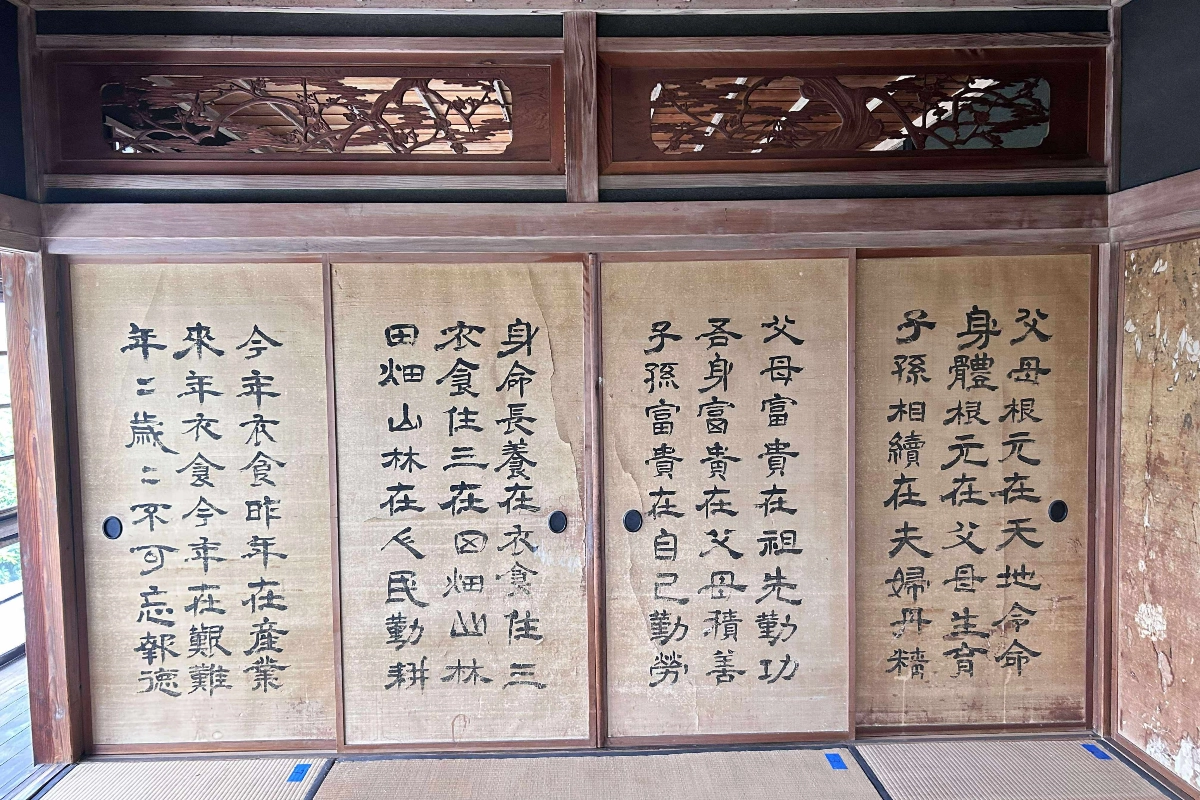 父母根元在天地令命
身體根元在父母生育
子孫相續在夫婦丹精
父母富貴在祖先勤功
吾身富貴在父母積善
子孫富貴在自己勤勞
身命長養在衣食住三
衣食住三在田畑山林
田畑山林在人民勤耕
今年衣食昨年在產業
來年衣食今年在艱難
年〻歲〻不可忘報德